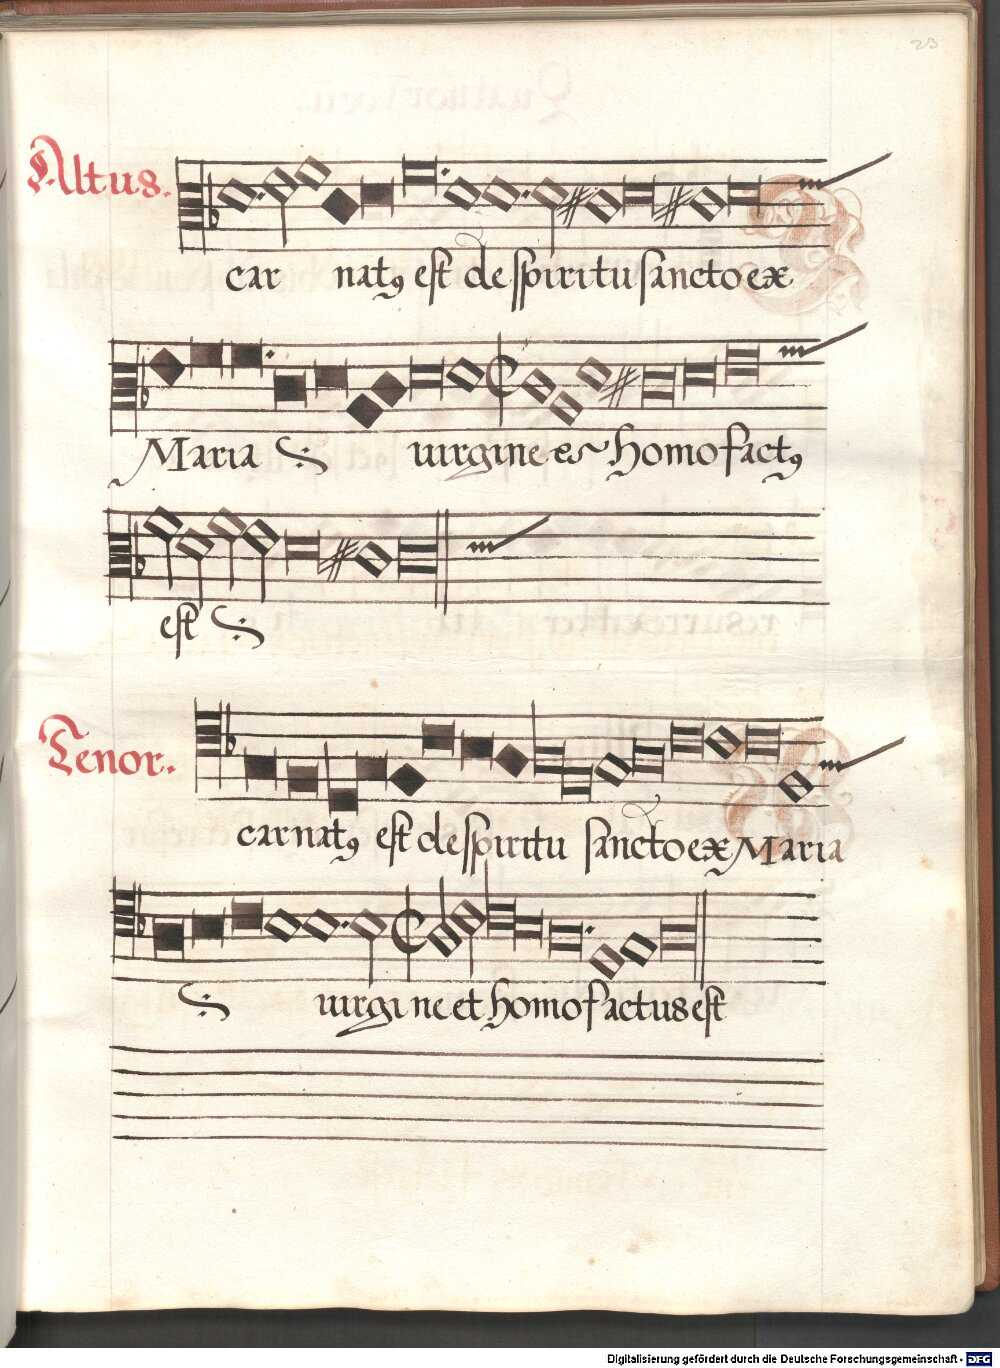 23
Altus.
car natꝯ est de spiritu sancto ex
Maria virgine et homo factꝯ
est
Tenor.
carnatꝯ est de spiritu sancto ex Maria
virgine et homo factus est
Digitalisierung gefördert durch die Deutsche Forschungsgemeinschaft - DFG